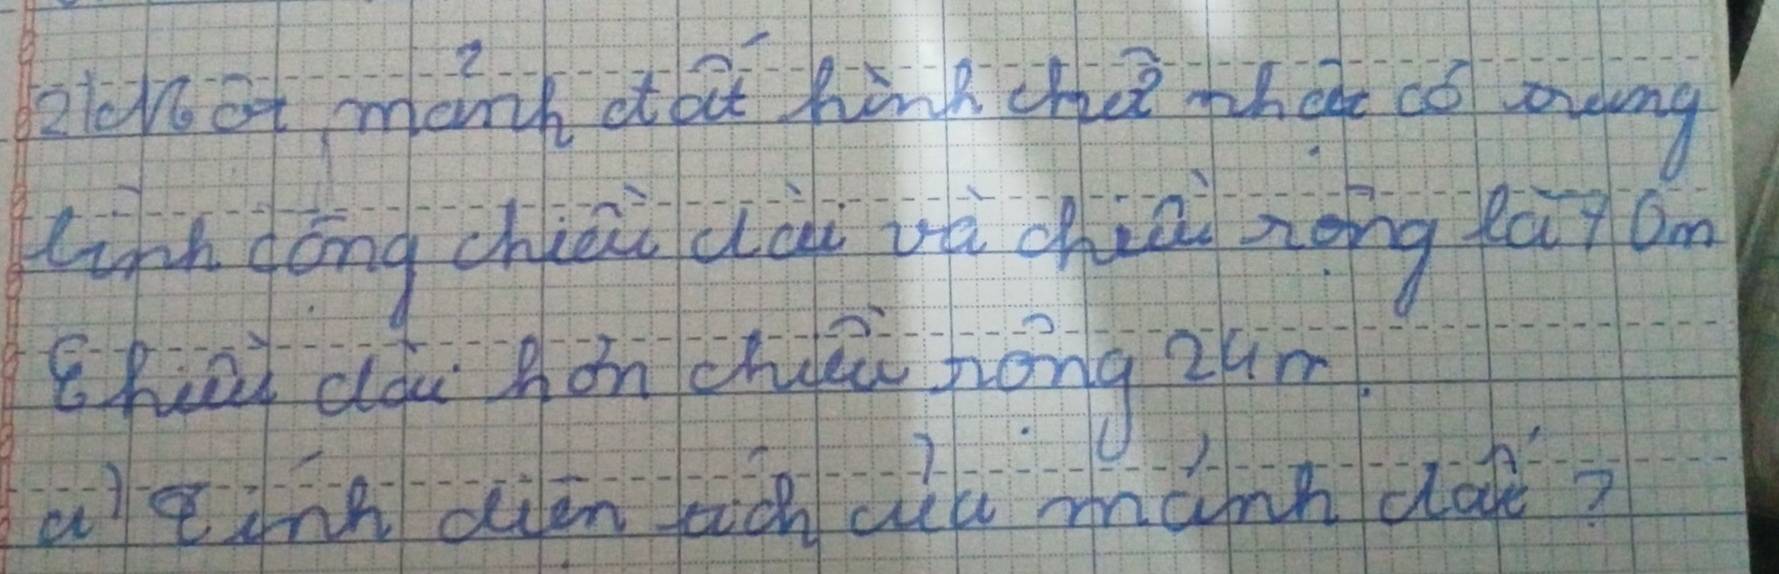 2) Một mảnh đất hình chữ nhật có trung
bình cộng chiều dài và chiều rộng là 70m
Chiều dài hơn chiều rộng 24m.
a) Tính diện tích của mảnh đất?